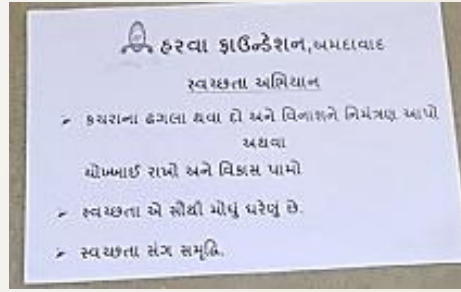 હરવા ફાઉન્ડેશન, અમદાવાદ
સ્વચ્છતા અભિયાન
➢ કચરાના ઢગલા થવા દો અને વિનાશને નિમંત્રણ આપો
અથવા
ચોખ્ખાઈ રાખો અને વિકાસ પામો
➢ સ્વચ્છતા એ સૌથી મોઘું ઘરેણું છે.
➢ સ્વચ્છતા સંગ સમૃદ્ધિ.